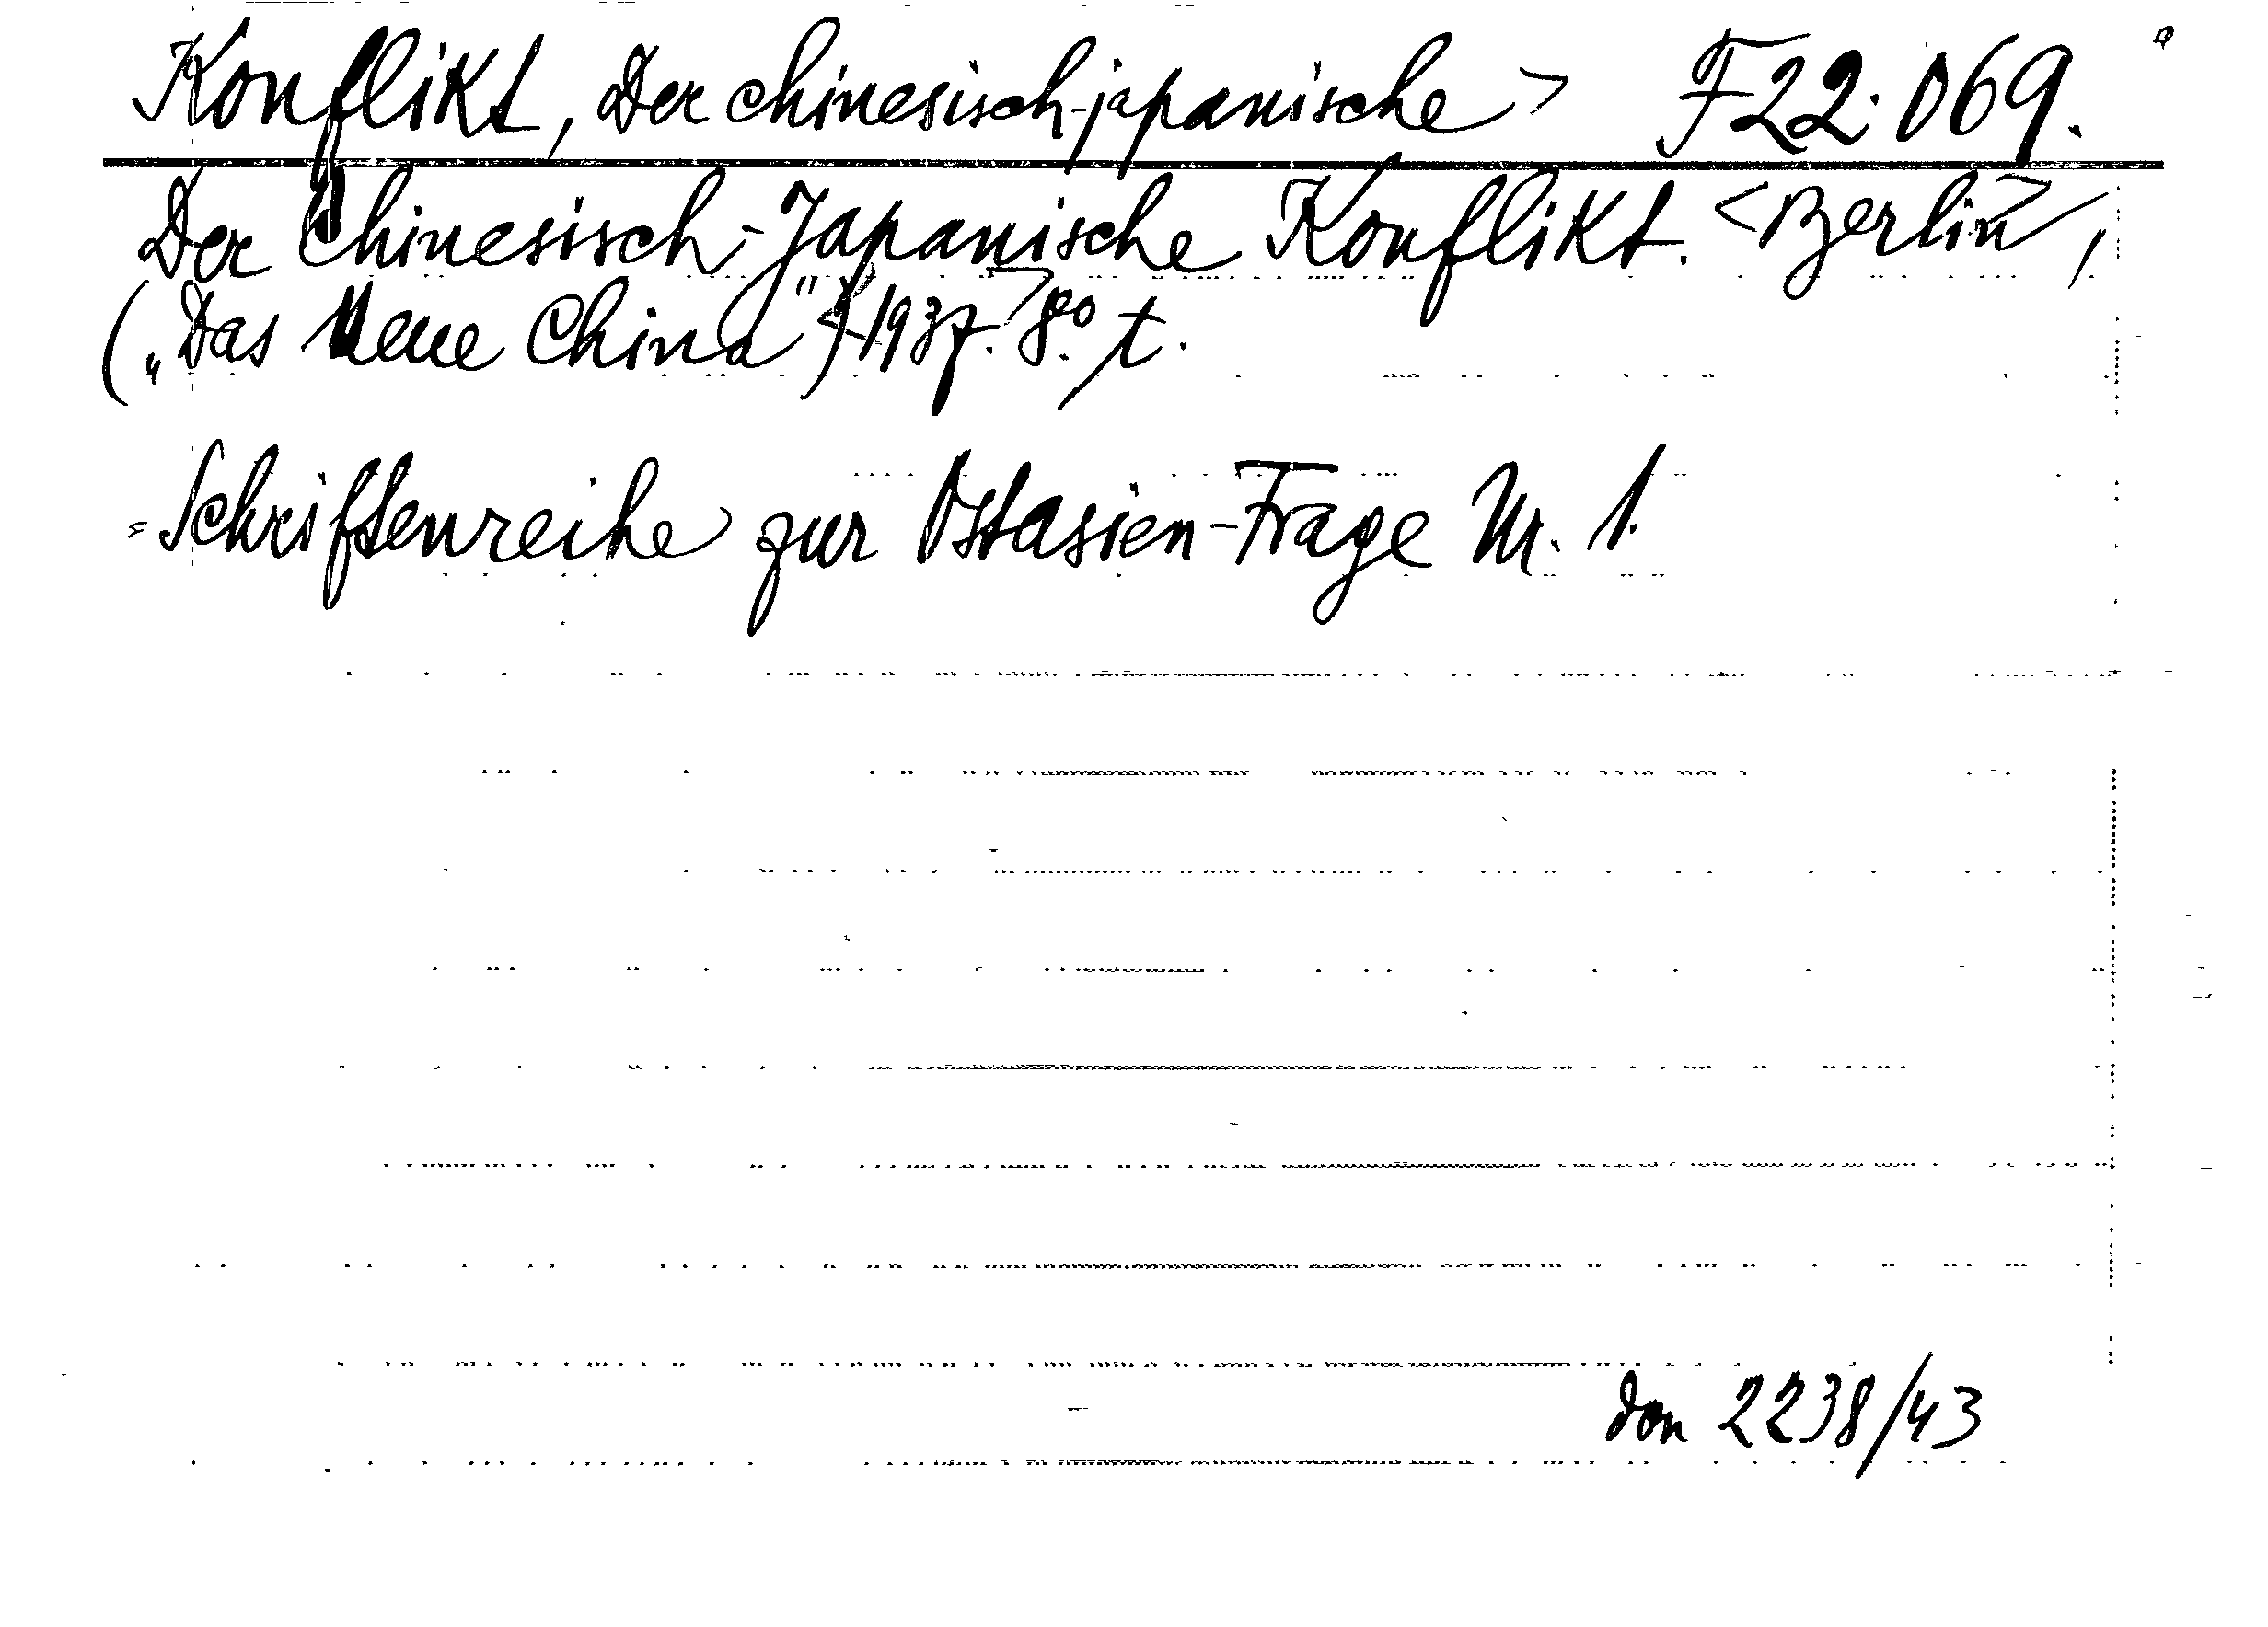 Konflikt, Der chinesisch-japanische > F22.069.
Der Chinesisch-Japanische Konflikt. <Berlin>,
("Das Neue China") <1937.> 8.° t.
= Schriftenreihe zur Ostasien-Frage Nr. 1.
don 2238/43